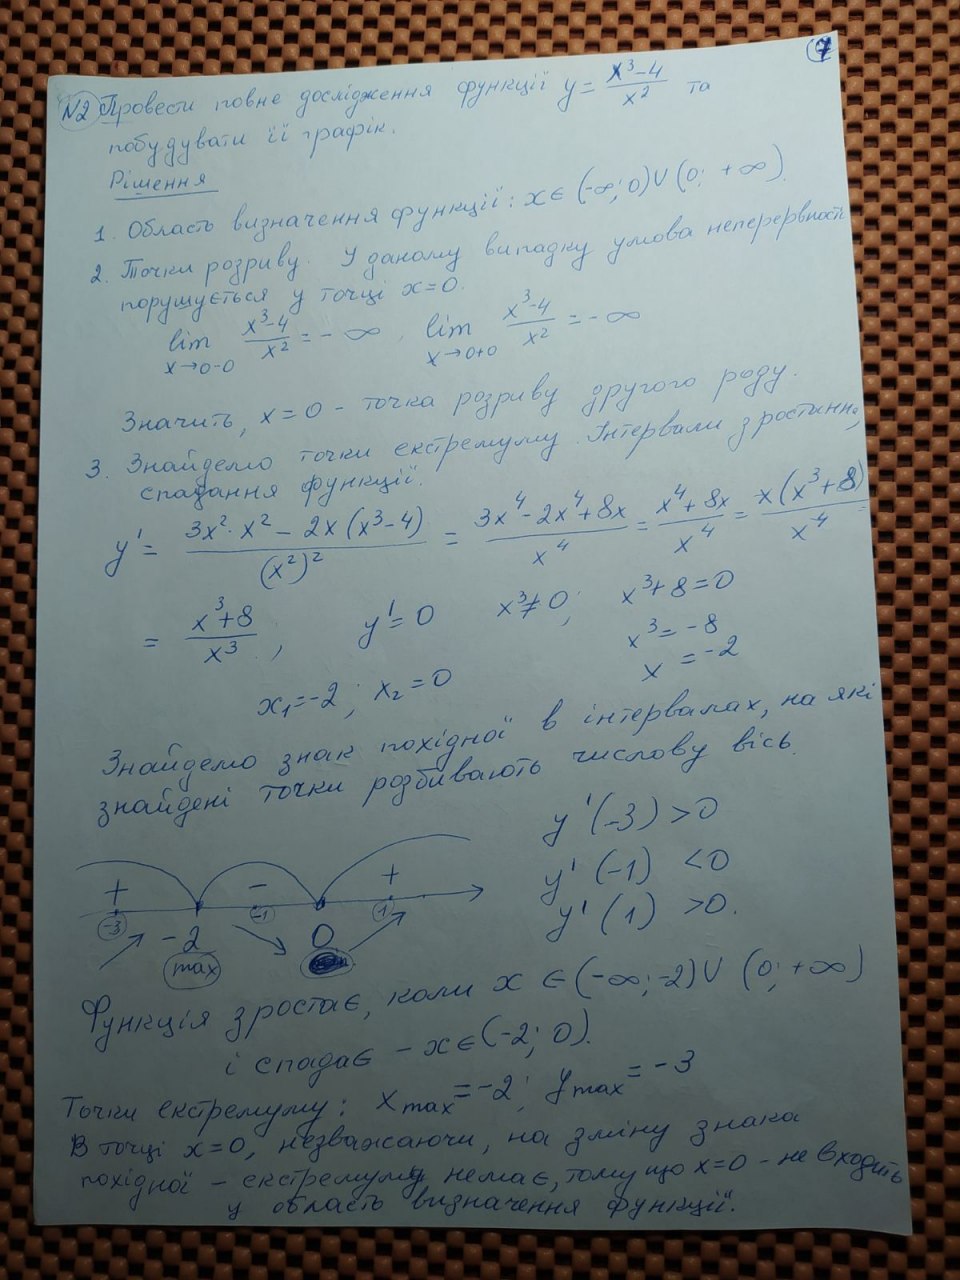 7
№2 Провести повне дослідження функції y = (x³-4)/x² та
побудувати її графік.
Рішення
1. Область визначення функції: x ∈ (-∞; 0) ∪ (0; +∞).
2. Точки розриву. У даному випадку умова неперервності
порушується у точці x=0.
lim x→0-0 (x³-4)/x² = -∞, lim x→0+0 (x³-4)/x² = -∞
Значить, x=0 - точка розриву другого роду.
3. Знайдемо точки екстремуму. Інтервали зростання,
спадання функції.
y' = (3x²·x² - 2x(x³-4))/(x²)² = (3x⁴-2x⁴+8x)/x⁴ = (x⁴+8x)/x⁴ = x(x³+8)/x⁴ =
= (x³+8)/x³, y'=0 x³≠0; x³+8=0
x³=-8
x=-2
x₁=-2; x₂=0
Знайдемо знак похідної в інтервалах, на які
знайдені точки розбивають числову вісь.
y'(-3) >0
y'(-1) <0
y'(1) >0.
+ - +
-3 -2 -1 0 1
max
Функція зростає, коли x ∈ (-∞; -2) ∪ (0; +∞)
і спадає - x ∈ (-2; 0).
Точки екстремуму: x max = -2; y max = -3
В точці x=0, незважаючи, на зміну знака
похідної - екстремуму немає, тому що x=0 - не входить
у область визначення функції.